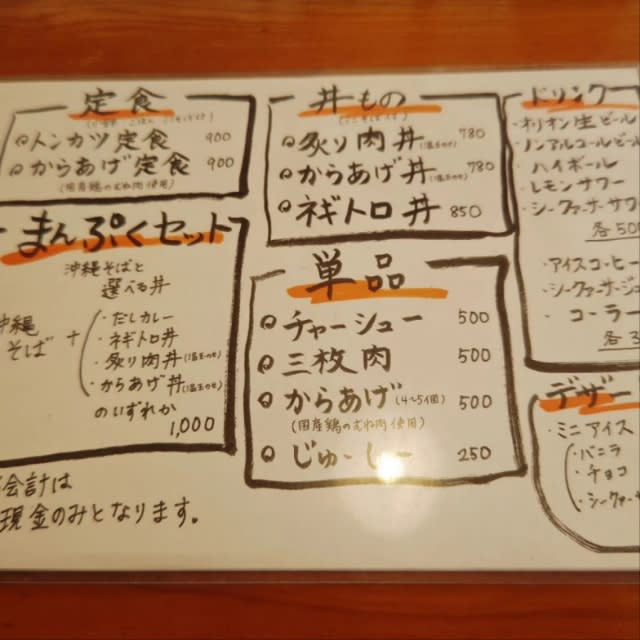 定食
トンカツ定食 900
からあげ定食 900
(国産鶏のむね肉使用)
まんぷくセット
沖縄そばと
選べる丼
沖縄
そば +
・だしカレー
・ネギトロ丼
・炙り肉丼(温玉のせ)
・からあげ丼(温玉のせ)
のいずれか
1,000
会計は
現金のみとなります。
丼もの
炙り肉丼(温玉のせ) 780
からあげ丼(温玉のせ) 780
ネギトロ丼 850
単品
チャーシュー 500
三枚肉 500
からあげ(4〜5個) 500
(国産鶏のむね肉使用)
じゅーしー 250
ドリンク
・オリオン生ビール
・ノンアルコールビール
・ハイボール
・レモンサワー
・シークァーサーサワ
各500
・アイスコーヒー
・シークァーサージュ
・コーラ
各3
デザー
・ミニアイス
・バニラ
・チョコ
・シークァーサ